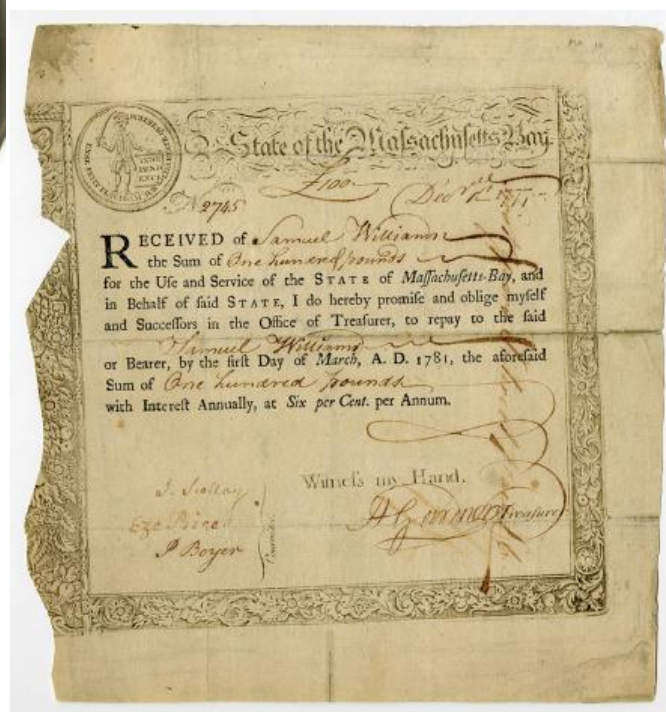 State of the Maſſachuſetts Bay.
£100
No 2745 Decr 1st 1777
RECEIVED of Samuel Williams
the Sum of One hundred pounds
for the Uſe and Service of the STATE of Maſſachuſetts-Bay, and
in Behalf of ſaid STATE, I do hereby promiſe and oblige myſelf
and Succeſſors in the Office of Treaſurer, to repay to the ſaid
Samuel Williams
or Bearer, by the firſt Day of March, A. D. 1781, the aforeſaid
Sum of One hundred pounds
with Intereſt Annually, at Six per Cent. per Annum.
Witneſs my Hand,
H Gardner Treaſurer
J. Scollay
Eze Price
P Boyer